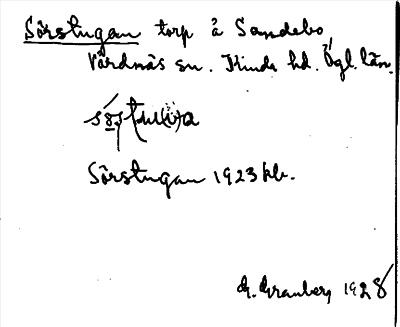 Sörstugan torp å Sandebo,
Vårdnäs sn. Kinda hd. Ögl. län.
Sörstugan 1923 kb.
G. Granberg 1928